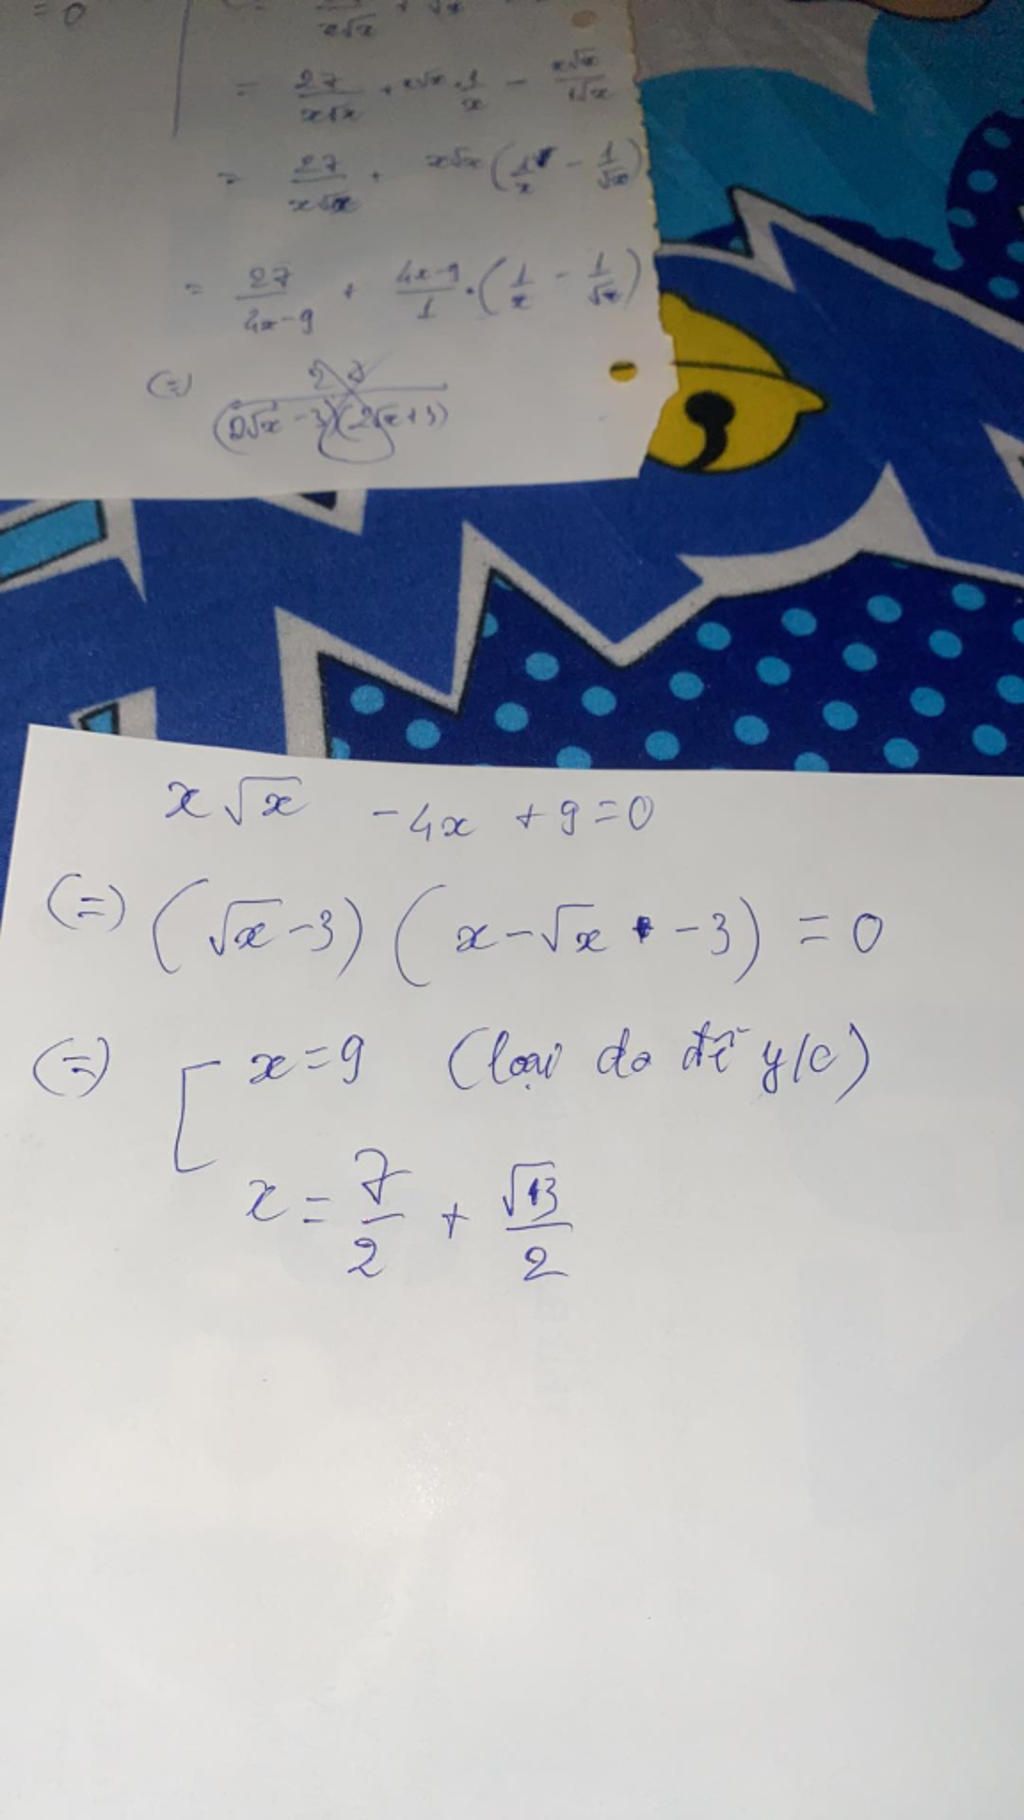 = 0
x√x + √x
= 27/(x√x) + x√x · 1/x - x√x/√x
= 27/(x√x) + x√x (1/x - 1/√x)
= 27/(4x-9) + (4x-9)/1 · (1/x - 1/√x)
(=) (2√x - 3)(2√x + 3)
x√x - 4x + 9 = 0
(=) (√x - 3) (x - √x - 3) = 0
(=) [ x = 9 (loại do đề y/c)
x = 7/2 + √13/2